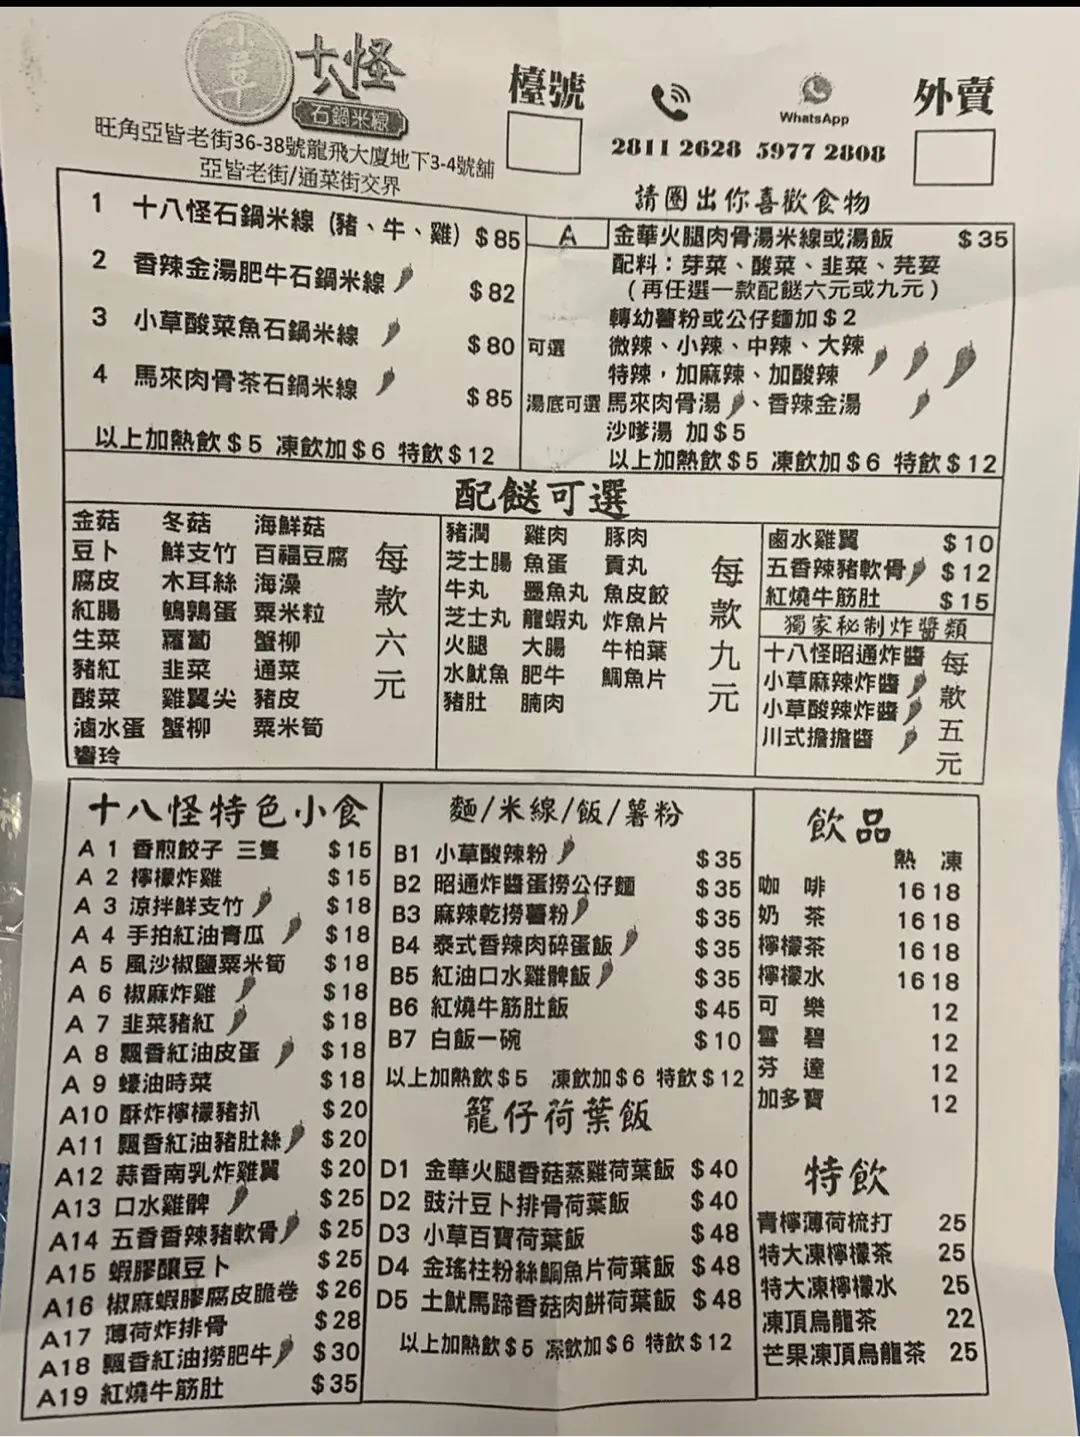 小草
十八怪
石鍋米線
旺角亞皆老街36-38號龍飛大廈地下3-4號舖
亞皆老街/通菜街交界
檯號
WhatsApp
2811 2628 5977 2808
外賣
請圈出你喜歡食物
1 十八怪石鍋米線 (豬、牛、雞) $85
2 香辣金湯肥牛石鍋米線 $82
3 小草酸菜魚石鍋米線 $80
4 馬來肉骨茶石鍋米線 $85
以上加熱飲$5 凍飲加$6 特飲$12
A 金華火腿肉骨湯米線或湯飯 $35
配料：芽菜、酸菜、韭菜、芫荽
(再任選一款配餸六元或九元)
轉幼薯粉或公仔麵加$2
可選 微辣、小辣、中辣、大辣
特辣，加麻辣、加酸辣
湯底可選 馬來肉骨湯、香辣金湯
沙嗲湯 加$5
以上加熱飲$5 凍飲加$6 特飲$12
配餸可選
金菇 冬菇 海鮮菇
豆卜 鮮支竹 百福豆腐
腐皮 木耳絲 海藻
紅腸 鵪鶉蛋 粟米粒
生菜 蘿蔔 蟹柳
豬紅 韭菜 通菜
酸菜 雞翼尖 豬皮
滷水蛋 蟹柳 粟米筍
響玲
每款六元
豬潤 雞肉 豚肉
芝士腸 魚蛋 貢丸
牛丸 墨魚丸 魚皮餃
芝士丸 龍蝦丸 炸魚片
火腿 大腸 牛柏葉
水魷魚 肥牛 鯛魚片
豬肚 腩肉
每款九元
鹵水雞翼 $10
五香辣豬軟骨 $12
紅燒牛筋肚 $15
獨家秘制炸醬類
十八怪昭通炸醬
小草麻辣炸醬
小草酸辣炸醬
川式擔擔醬
每款五元
十八怪特色小食
A 1 香煎餃子 三隻 $15
A 2 檸檬炸雞 $15
A 3 涼拌鮮支竹 $18
A 4 手拍紅油青瓜 $18
A 5 風沙椒鹽粟米筍 $18
A 6 椒麻炸雞 $18
A 7 韭菜豬紅 $18
A 8 飄香紅油皮蛋 $18
A 9 蠔油時菜 $18
A10 酥炸檸檬豬扒 $20
A11 飄香紅油豬肚絲 $20
A12 蒜香南乳炸雞翼 $20
A13 口水雞髀 $25
A14 五香香辣豬軟骨 $25
A15 蝦膠釀豆卜 $25
A16 椒麻蝦膠腐皮脆卷 $26
A17 薄荷炸排骨 $28
A18 飄香紅油撈肥牛 $30
A19 紅燒牛筋肚 $35
麵/米線/飯/薯粉
B1 小草酸辣粉 $35
B2 昭通炸醬蛋撈公仔麵 $35
B3 麻辣乾撈薯粉 $35
B4 泰式香辣肉碎蛋飯 $35
B5 紅油口水雞髀飯 $35
B6 紅燒牛筋肚飯 $45
B7 白飯一碗 $10
以上加熱飲$5 凍飲加$6 特飲$12
籠仔荷葉飯
D1 金華火腿香菇蒸雞荷葉飯 $40
D2 豉汁豆卜排骨荷葉飯 $40
D3 小草百寶荷葉飯 $48
D4 金瑤柱粉絲鯛魚片荷葉飯 $48
D5 土魷馬蹄香菇肉餅荷葉飯 $48
以上加熱飲$5 凍飲加$6 特飲$12
飲品
熱 凍
咖啡 16 18
奶茶 16 18
檸檬茶 16 18
檸檬水 16 18
可樂 12
雪碧 12
芬達 12
加多寶 12
特飲
青檸薄荷梳打 25
特大凍檸檬茶 25
特大凍檸檬水 25
凍頂烏龍茶 22
芒果凍頂烏龍茶 25